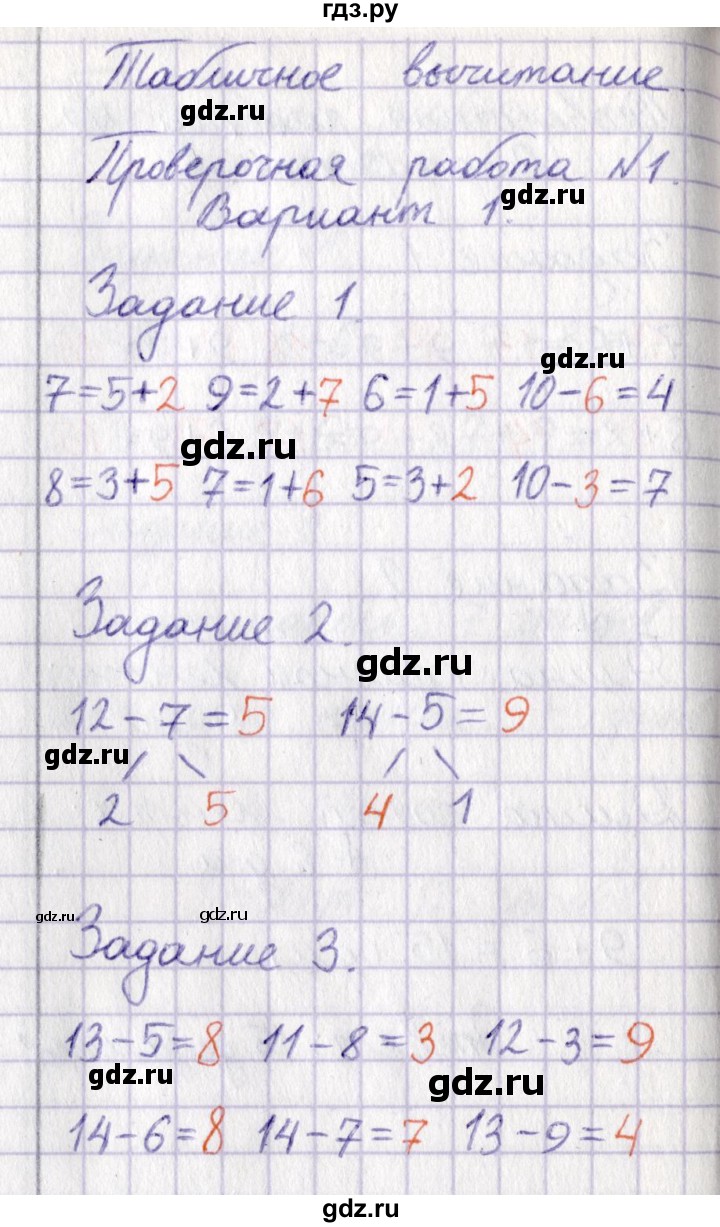 гдз.ру
Табличное вычитание.
gdz.ru
Проверочная работа №1.
gdz.ru
Вариант 1.
Задание 1.
gdz.ru
7=5+2 9=2+7 6=1+5 10-6=4
gdz.ru
8=3+5 7=1+6 5=3+2 10-3=7
Задание 2.
gdz.ru
12-7=5 14-5=9
gdz.ru
2 5 4 1
gdz.ru gdz.ru
Задание 3.
13-5=8 11-8=3 12-3=9
gdz.ru gdz.ru
14-6=8 14-7=7 13-9=4
gdz.ru